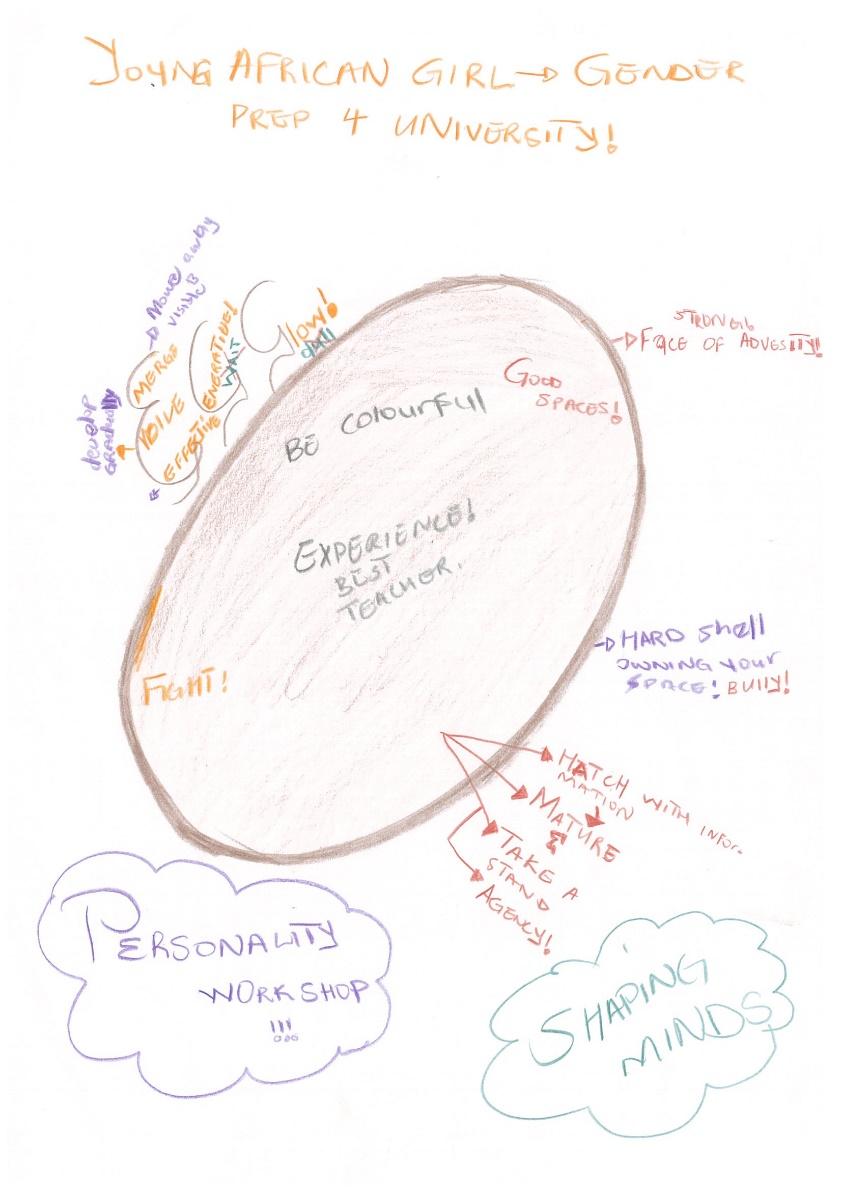 YOUNG AFRICAN GIRL → GENDER
PREP 4 UNIVERSITY!
→ Move away
VISIBLE
MERGE
develop
GRADUALLY
EFFECTIVE
ENERATIVE!
WAIT
Glow!
dull
BE colourful
GOOD
SPACES!
STRONG!
→ FACE OF ADVESITY!
EXPERIENCE!
BEST
TEACHER.
FIGHT!
→ HARD shell
OWNING YOUR
SPACE! BULLY!
HATCH WITH INFOR-
MATION
MATURE
&
TAKE A
STAND
AGENCY!
PERSONALITY
WORKSHOP
!!!
SHAPING
MINDS